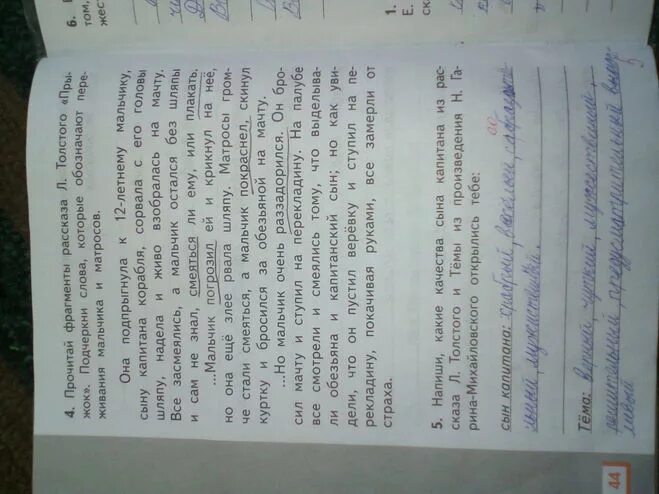 4. Прочитай фрагменты рассказа Л. Толстого «Пры-
жок». Подчеркни слова, которые обозначают пере-
живания мальчика и матросов.
Она подпрыгнула к 12-летнему мальчику,
сыну капитана корабля, сорвала с его головы
шляпу, надела и живо взобралась на мачту.
Все засмеялись, а мальчик остался без шляпы
и сам не знал, смеяться ли ему, или плакать.
...Мальчик погрозил ей и крикнул на неё,
но она ещё злее рвала шляпу. Матросы гром-
че стали смеяться, а мальчик покраснел, скинул
куртку и бросился за обезьяной на мачту.
...Но мальчик очень раззадорился. Он бро-
сил мачту и ступил на перекладину. На палубе
все смотрели и смеялись тому, что выделыва-
ли обезьяна и капитанский сын; но как увиде-
дели, что он пустил верёвку и ступил на пе-
рекладину, покачивая руками, все замерли от
страха.
5. Напиши, какие качества сына капитана из рас-
сказа Л. Толстого и Тёмы из произведения Н. Га-
рина-Михайловского открылись тебе:
сын капитана: храбрый, весёлый,
Тёма: верный, чуткий, мужественный,
решительный
44
6.
том,
жест
1.
Е.
ска